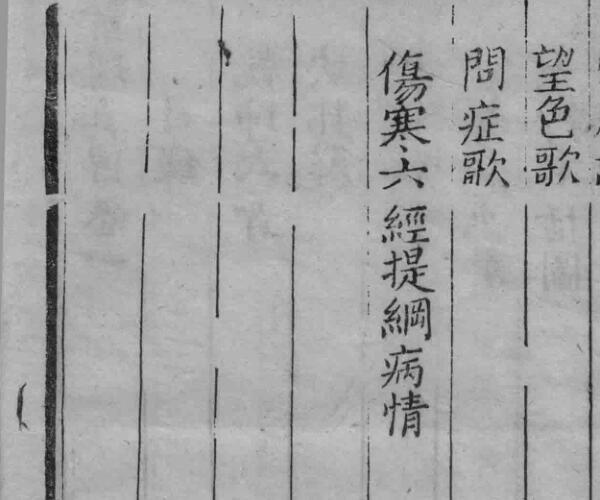 望色歌
問症歌
傷寒六經提綱病情